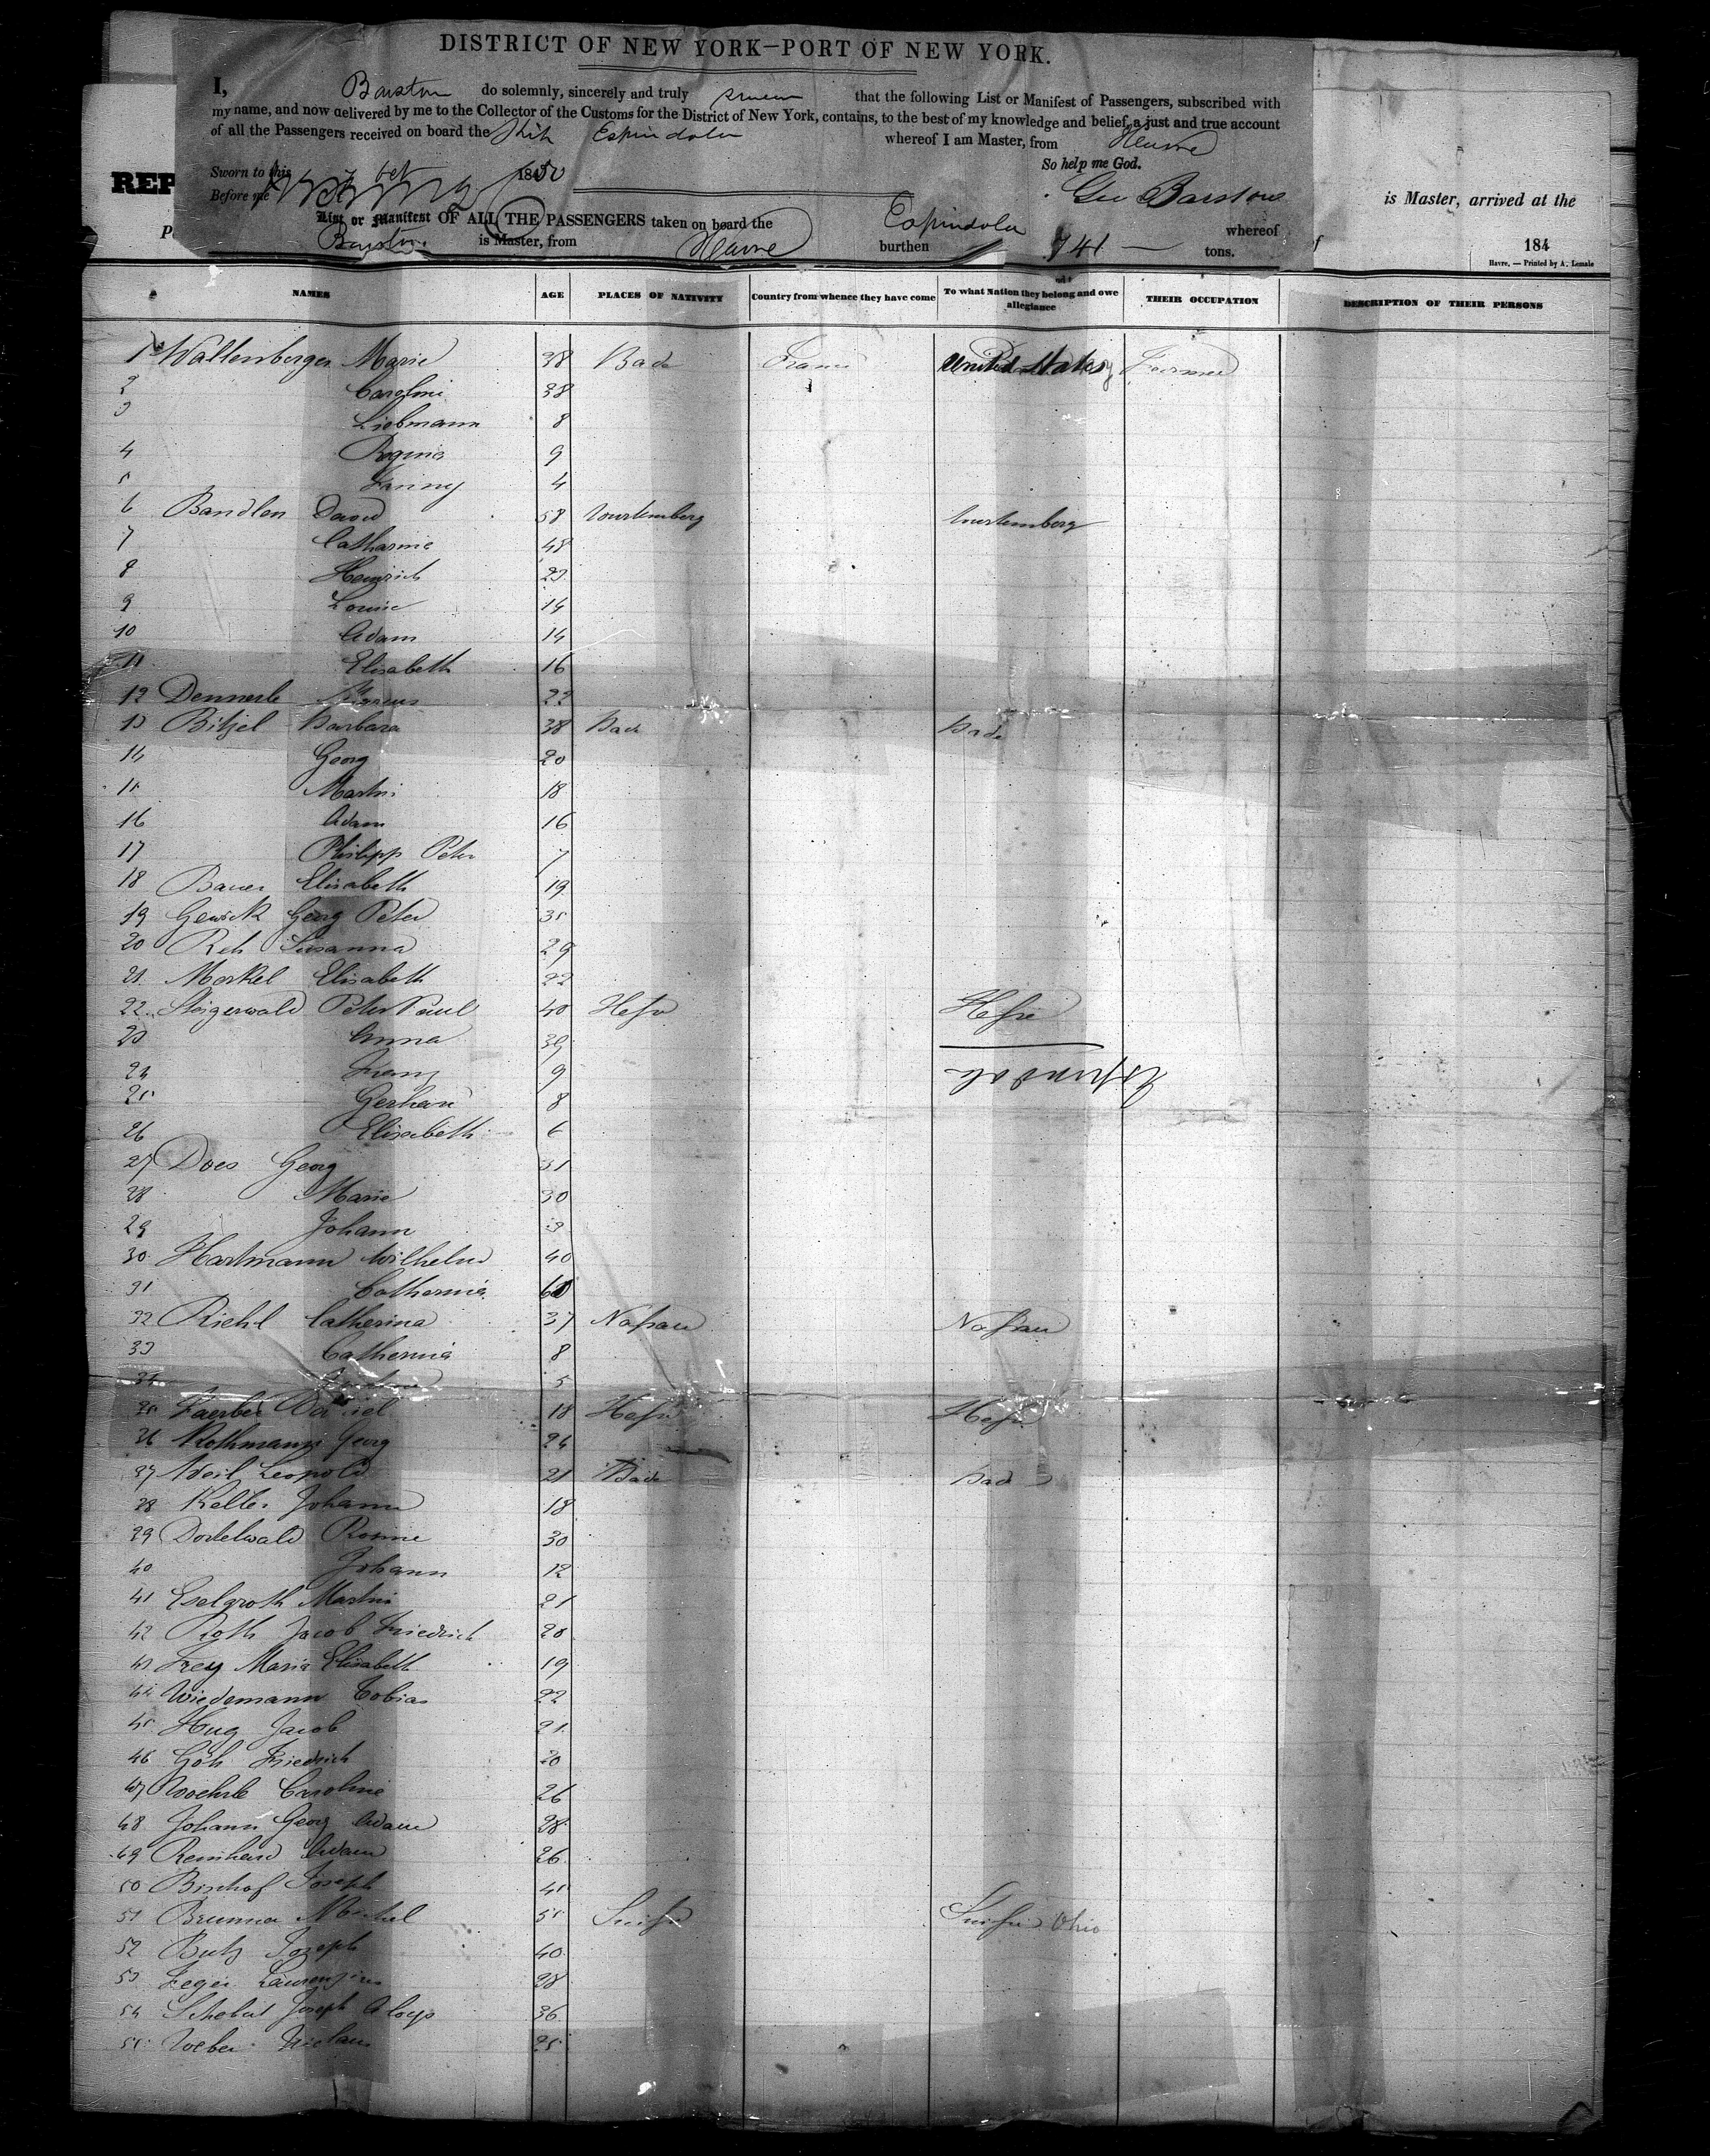 DISTRICT OF NEW YORK—PORT OF NEW YORK.
I, Barstow do solemnly, sincerely and truly swear that the following List or Manifest of Passengers, subscribed with
my name, and now delivered by me to the Collector of the Customs for the District of New York, contains, to the best of my knowledge and belief, a just and true account
of all the Passengers received on board the Ship Espindola whereof I am Master, from Havre
So help me God.
Sworn to this Oct 1850
Before me
Geo Barstow
REP
is Master, arrived at the
List or Manifest OF ALL THE PASSENGERS taken on board the Espindola whereof
Barstow is Master, from Havre burthen 741 tons.
184
Havre. — Printed by A. Lemale
NAMES AGE PLACES OF NATIVITY Country from whence they have come To what Nation they belong and owe allegiance THEIR OCCUPATION DESCRIPTION OF THEIR PERSONS
1 Wallenberger Marie 38 Bade United States Farmer
2 Caroline 38
3 Liebmann 8
4 Regina 9
5 Fanny 4
6 Bandlen David 58 Wurtemberg Wurtemberg
7 Catharine 48
8 Heinrich 23
9 Louise 14
10 Adam 14
11 Elisabeth 16
12 Dennerle 22
13 Bitzel Barbara 38 Bade Bade
14 Georg 20
15 Martin 18
16 Adam 16
17 Philipp Peter 7
18 Bauer Elisabeth 19
19 Gewick Georg Peter 35
20 Reh Susanna 29
21 Merkel Elisabeth 22
22 Steigerwald Peter Paul 40 Hesse Hesse
23 Anna 39
24 Franz 9
Espindola
25 Gerhard 8
26 Elisabeth 6
27 Does Georg 31
28 Marie 30
29 Johann 3
30 Hartmann Wilhelm 40
31 Catherina 60
32 Riehl Catherina 37 Nassau Nassau
33 Catherina 8
34 5
35 Faerber Daniel 18 Hesse Hesse
36 Rothmann Georg 24
37 Weil Leopold 21 Bade Bade
38 Keller Johann 18
39 Dorlelwald Rosine 30
40 Johann 12
41 Eselgroth Martin 21
42 Roth Jacob Friedrich 20
43 Frey Maria Elisabeth 19
44 Wiedemann Tobias 22
45 Hug Jacob 21
46 Göh Friedrich 20
47 Woehrle Caroline 26
48 Johann Georg Adam 28
49 Reinhard Adam 26
50 Bischof Joseph 45
51 Brunner Michel 51 Suisse Suisse Ohio
52 Butz Joseph 40
53 Feger 28
54 Joseph Aloys 36
55 Weber 25